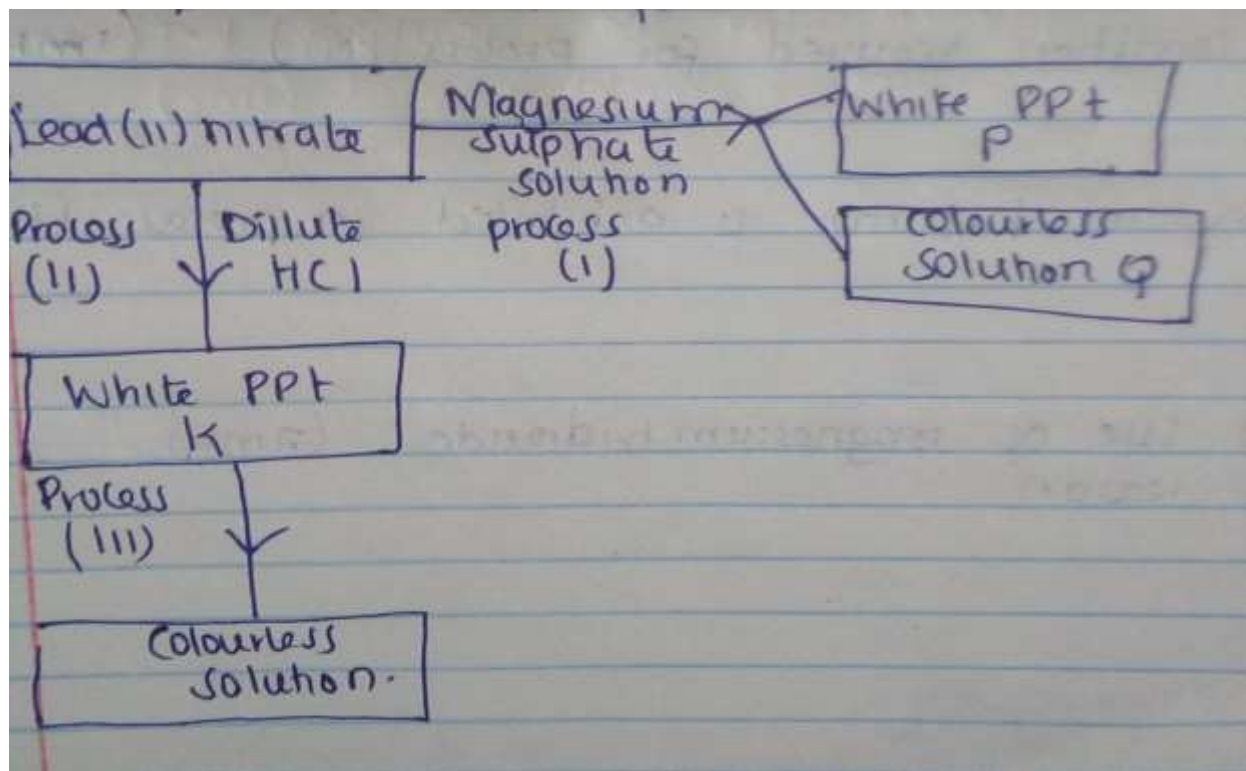 Lead (11) nitrate
Magnesium
sulphate
solution
process
(1)
White PPt
P
Colourless
solution Q
Process
(11)
Dillute
HCl
White PPt
K
Process
(111)
Colourless
solution.